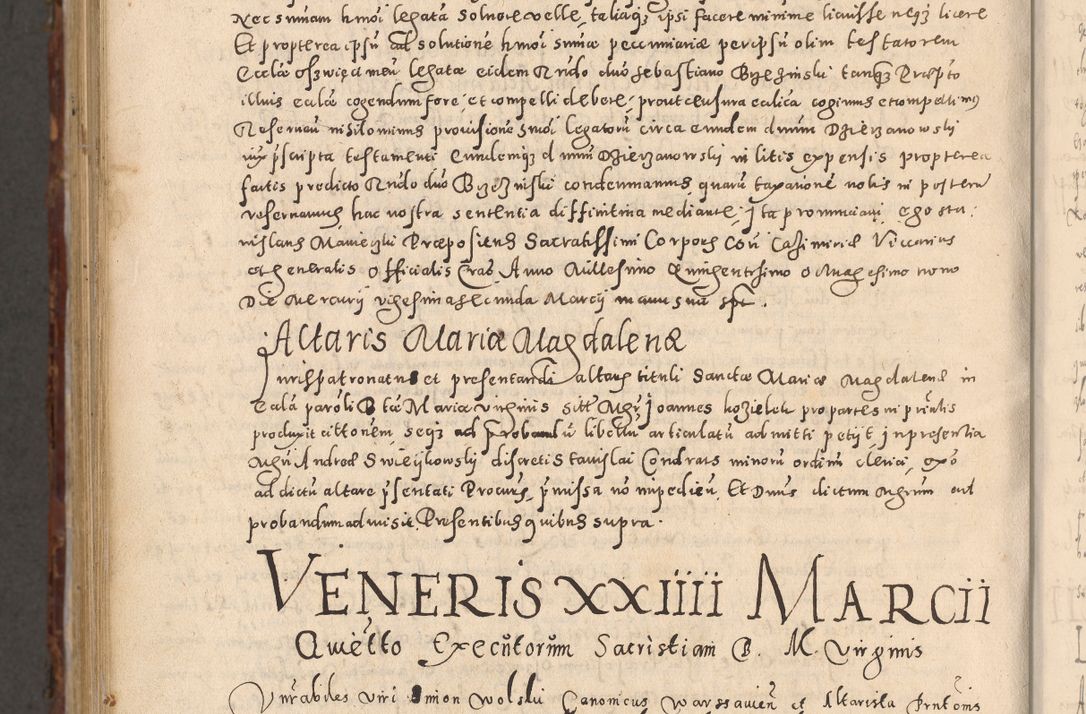 Nec summam hmoi legata solvere velle, taliaqz ipsi facere minime licuisse neqz licere
Et propterea ipsu ad solutione hmoi sumae pecuniariae per ipsu olim testatorem
Eccla legatae eidem Rndo duo Sebastiano Brzezinski tanqz Praepto
illius ecclae cogendum fore et compelli debere, prout censura ecclica cogimus et compellimus
Reservam nihilominus provisione legatoru circa eundem dnum Dzierzanowski
testamenti Eundemqz dnum Dzierzanowski in litis expensis propterea
factis predicto Rndo duo Brzezinski condemnamus, quaru taxatione nobis in posteru
reservamus, hac nostra sententia diffinitiva mediante, Ita pronunciavi ego Sta
nislaus Praepositus Sacratissimi Corporis Casimiriae Viccarius
et generalis Officialis Crac. Anno Millesimo Quingentesimo octuagesimo nono
Die Mercurij vigesima secunda Marcij manu sua spt.
Altaris Mariæ Magdalenæ
Jurispatronatus et presentandi altaris tituli Sanctæ Mariæ Magdalenæ in
Ecclā paroli B tæ Mariæ virginis Mgr Joannes kozielek pro partes in principalis
produxit cittonem, seqz ad probandū libellū articulatū admitti petijt Jn presentia
Mgri Andreæ Swieykowski discreti Stanislai Condrats minorū ordinū clerici, ex o
ad dictū altare psentati Procuris, pmissa nō impedien. Et Dnus dictum Mgrum ad
probandum admisit. Presentibus quibus supra.
VENERIS XXIIII MARCII
Quietto Executorum Sacristiam B. M. virginis
Venrabiles viri Simon Wolski Canonicus Warssavien et Altarista